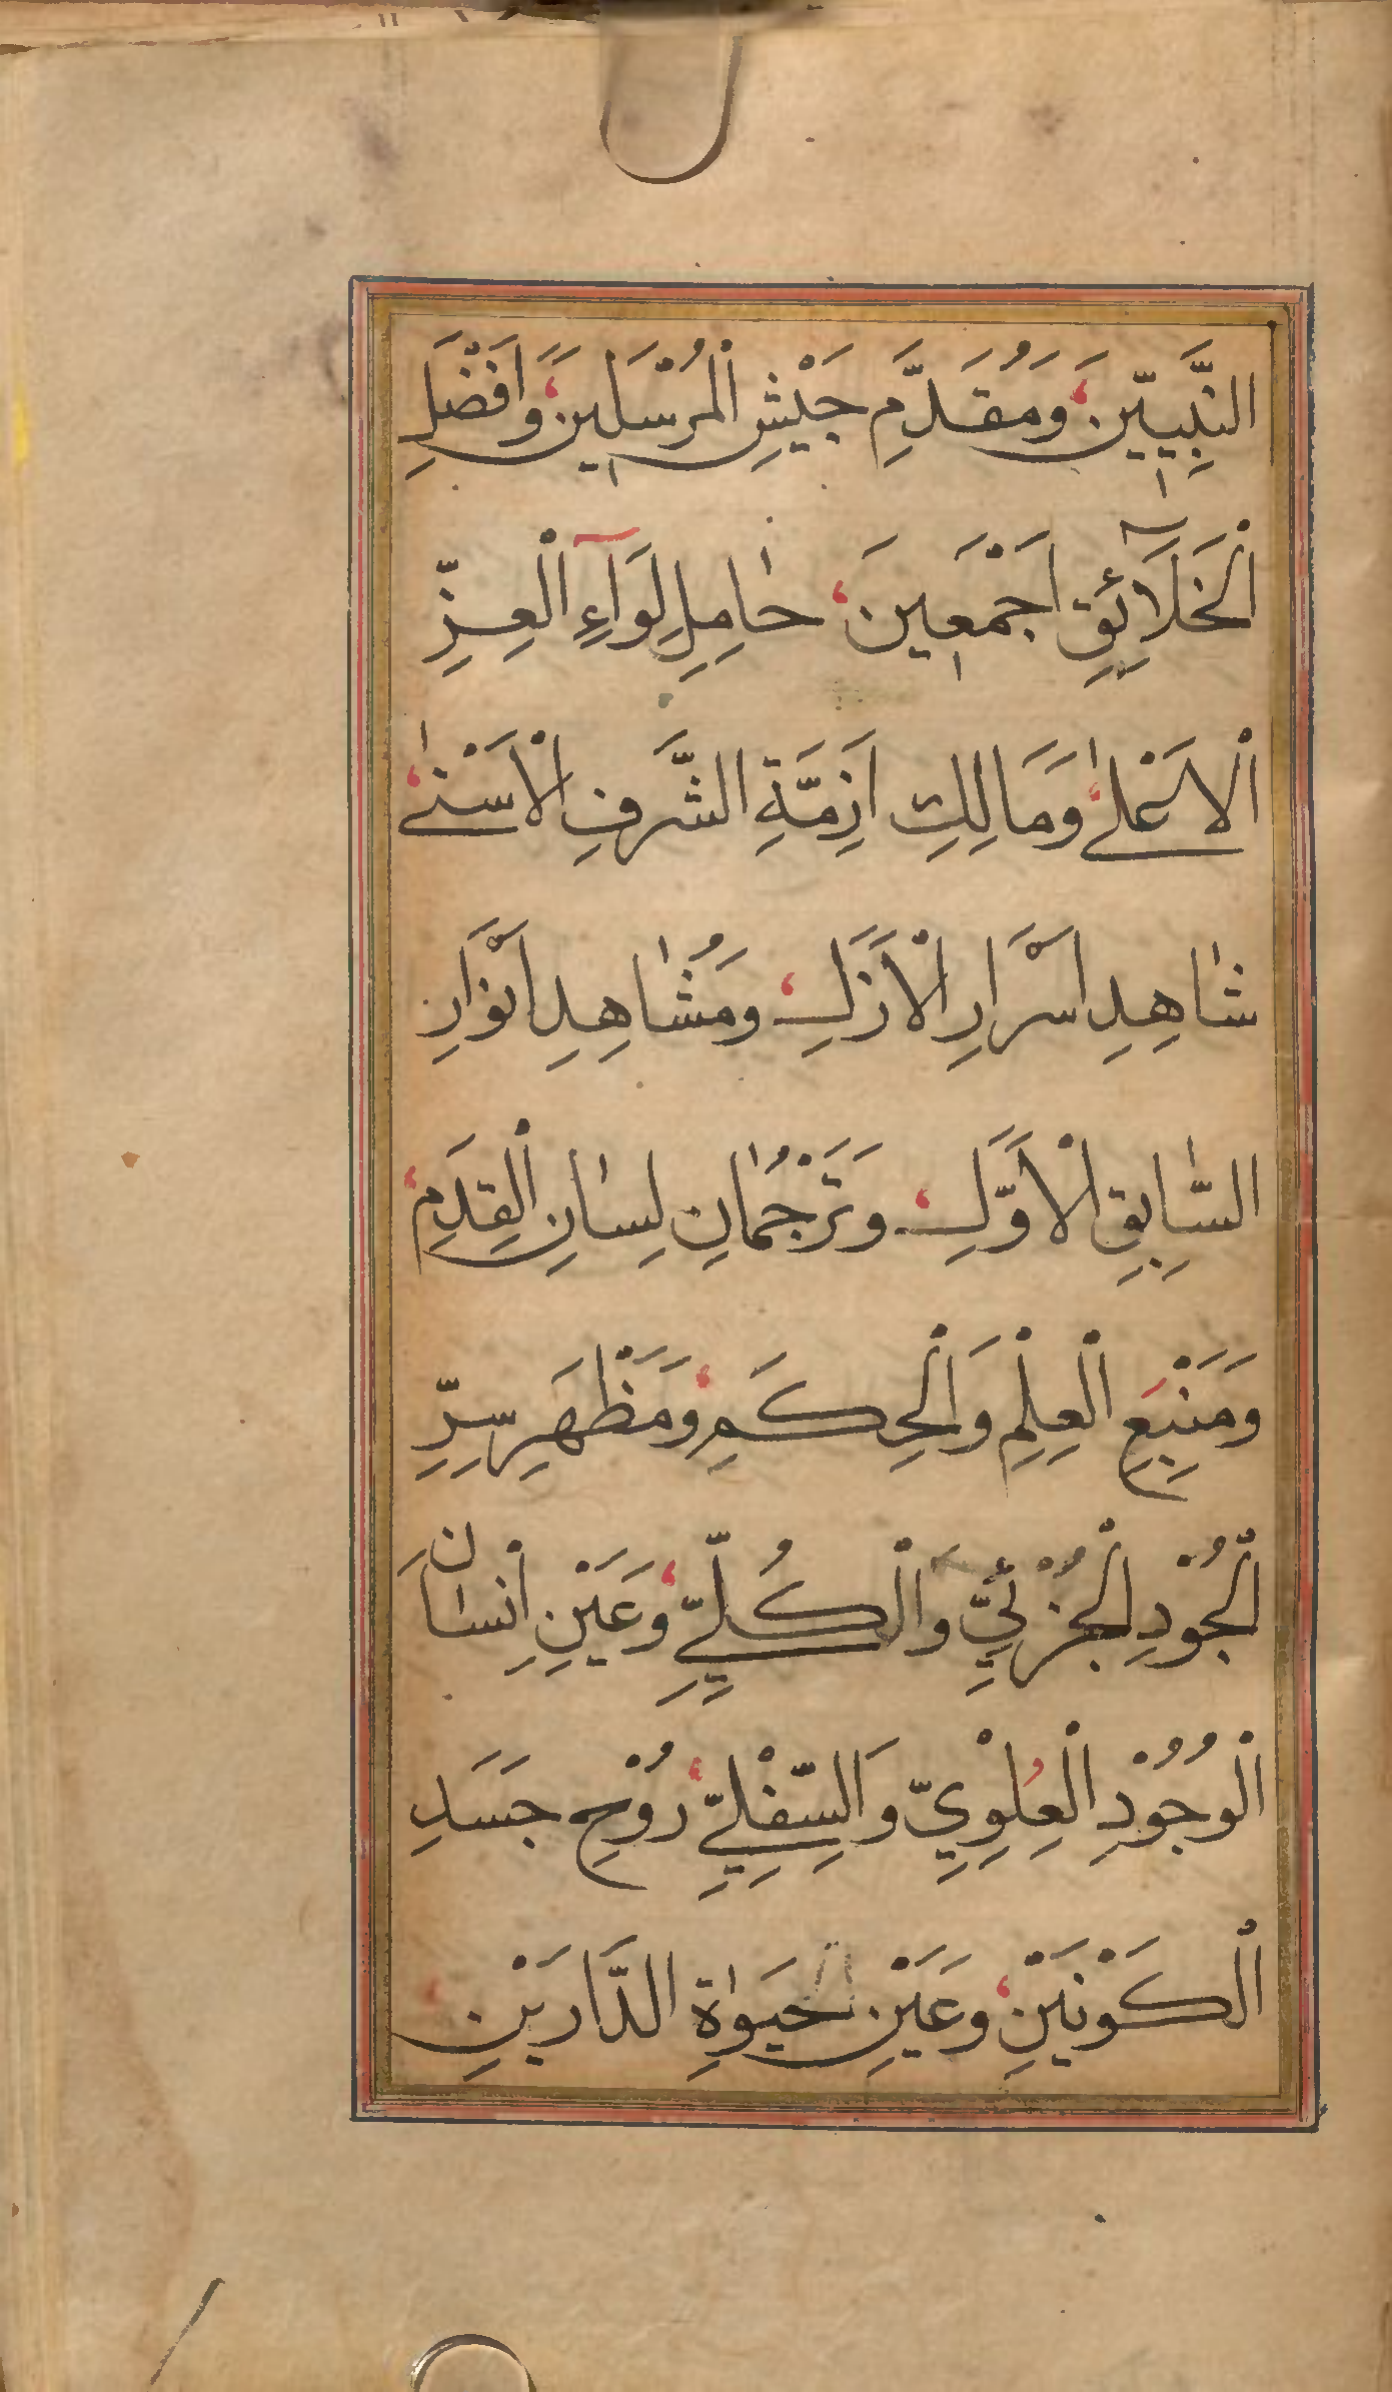 النَّبِيّينَ، وَمُقَدَّمِ جَيْشِ الْمُرْسَلينَ، وَاَفْضَلِ
الْخَلَآئِقِ اَجْمَعينَ، حٰامِلِ لِوَآءِ الْعِزِّ
الْاَعْلىٰ، وَمَالِكِ اَزِمَّةِ الشَّرَفِ الْاَسْنىٰ،
شٰاهِدِ اَسْرَارِ الْاَزَلِ، وَمُشٰاهِدِ اَنْوَارِ
السّٰابِقِ الْاَوَّلِ، وَتَرْجُمٰانِ لِسٰانِ الْقِدَمِ،
وَمَنْبَعِ الْعِلْمِ وَالْحِكَمِ، وَمَظْهَرِ سِرِّ
الْجُوْدِ الْجُزْئِيِّ وَالْكُلِّيِّ، وَعَيْنِ اِنْسٰانَ
الْوُجُوْدِ الْعُلْوِيِّ وَالسِّفْلِيِّ، رُوْحِ جَسَدِ
الْكَوْنَيْنِ، وَعَيْنِ حَيَوٰةِ الدَّارَيْنِ،